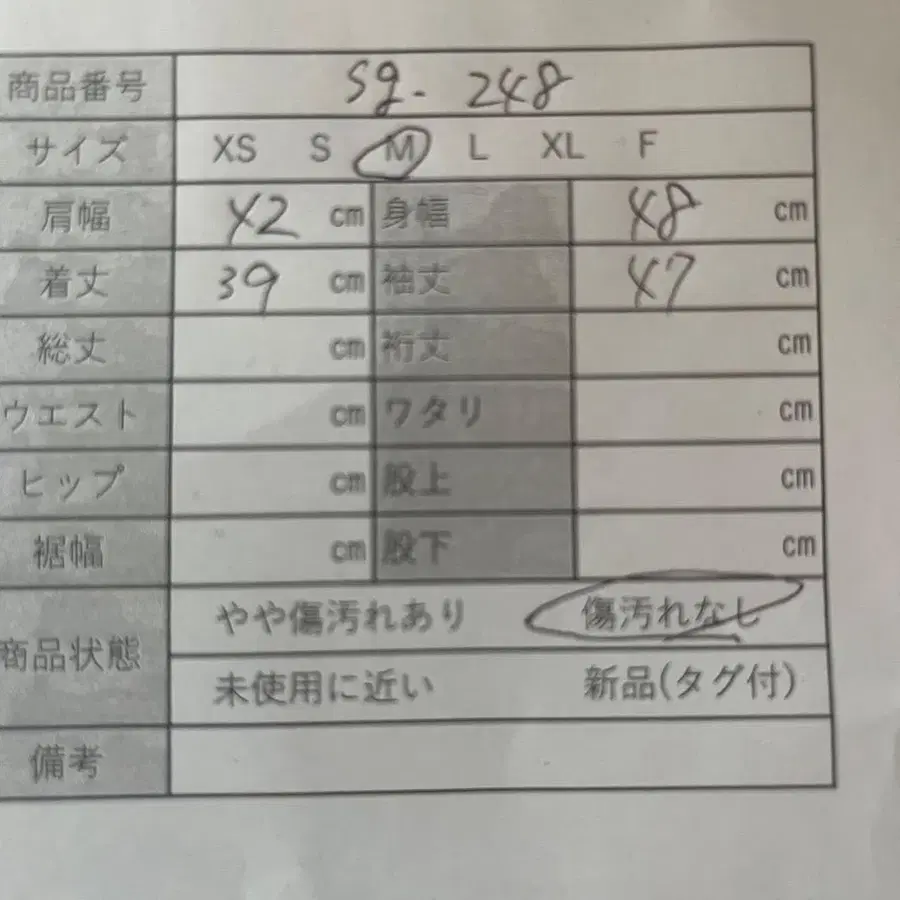 商品番号 sg- 248
サイズ XS S M L XL F
肩幅 42 cm 身幅 48 cm
着丈 39 cm 袖丈 47 cm
総丈 cm 裄丈 cm
ウエスト cm ワタリ cm
ヒップ cm 股上 cm
裾幅 cm 股下 cm
商品状態 やや傷汚れあり 傷汚れなし
未使用に近い 新品(タグ付)
備考